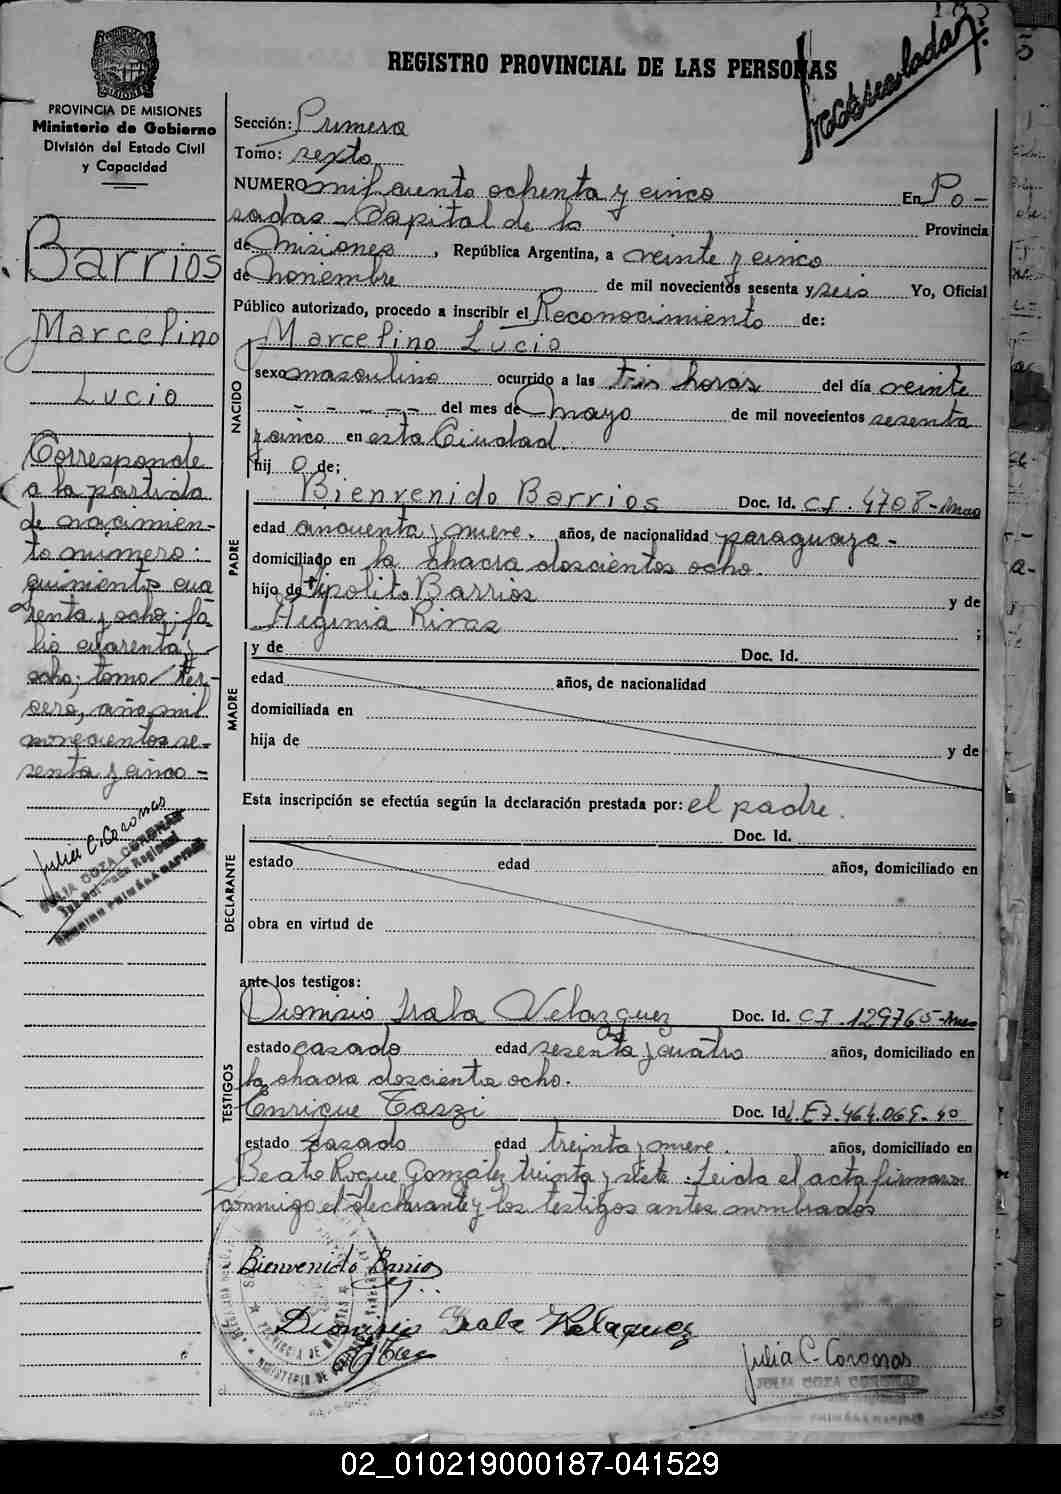 REGISTRO PROVINCIAL DE LAS PERSONAS
PROVINCIA DE MISIONES
Ministerio de Gobierno
División del Estado Civil
y Capacidad
Barrios
Marcelino
Lucio
Corresponde
a la partida
de nacimien-
to número:
quinientos cua
renta y ocho; fo-
lio cuarenta y
ocho; tomo ter-
cero, año mil
novecientos se-
senta y cinco -
Julia C. Coronas
JULIA COZA CORONAS
Sección: Primera
Tomo: sexto
NUMERO mil ciento ochenta y cinco En Po-
sadas - Capital de la Provincia
de Misiones, República Argentina, a veinte y cinco
de noviembre de mil novecientos sesenta y seis Yo, Oficial
Público autorizado, procedo a inscribir el Reconocimiento de:
Marcelino Lucio
NACIDO
sexo masculino ocurrido a las tres horas del día veinte
- - - - - - del mes de mayo de mil novecientos sesenta
y cinco en esta Ciudad.
hij o de;
PADRE
Bienvenido Barrios Doc. Id. CI. 4708-Mnes
edad cincuenta y nueve. años, de nacionalidad paraguaya -
domiciliado en la chacra doscientos ocho.
hijo de Hipolito Barrios y de
Higinia Rivas ;
MADRE
y de Doc. Id.
edad años, de nacionalidad
domiciliada en
hija de y de
Esta inscripción se efectúa según la declaración prestada por: el padre.
DECLARANTE
Doc. Id.
estado edad años, domiciliado en
obra en virtud de
ante los testigos:
TESTIGOS
Dionisio Irala Velazquez Doc. Id. CI. 129765-Mnes
estado casado edad sesenta y cuatro años, domiciliado en
la chacra doscientos ocho.
Enrique Doc. Id. L.E 7.464.069.
estado casado edad treinta y nueve. años, domiciliado en
Beato Roque González treinta y siete. Leida el acta firmaron
conmigo el declarante y los testigos antes nombrados
Bienvenido Barrios
Dionisio Irala Velazquez
Julia C. Coronas
JULIA COZA CORONAS
02_010219000187-041529